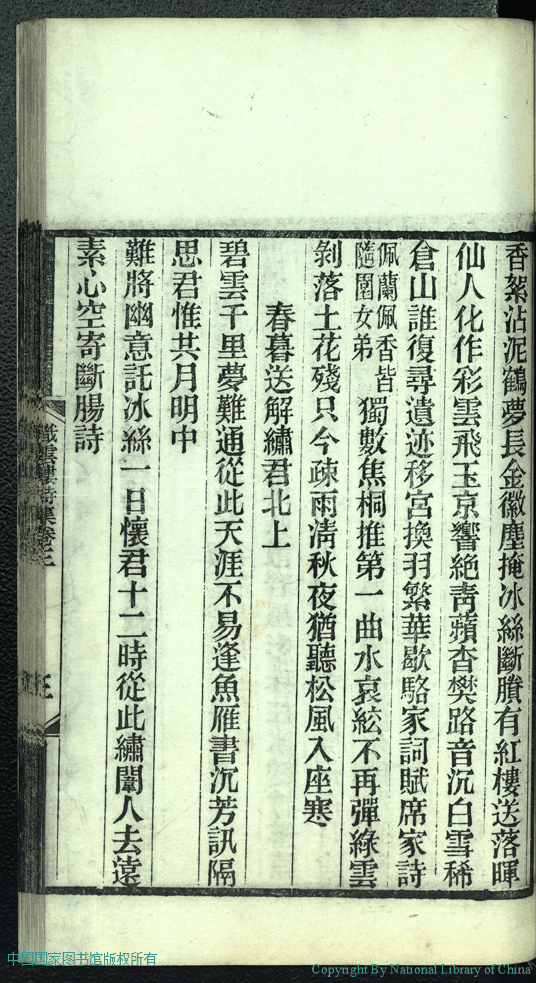 香絮沾泥鶴夢長金徽塵掩冰絲斷賸有紅樓送落暉
仙人化作彩雲飛玉京響絕靑蘋杳樊路音沉白雪稀
倉山誰復尋遺迹移宮換羽繁華歇駱家詞賦席家詩
佩蘭佩香皆
隨園女弟
獨數焦桐推第一曲水哀絃不再彈綠雲
剝落土花殘只今疎雨淸秋夜猶聽松風入座寒
春暮送解繡君北上
碧雲千里夢難通從此天涯不易逢魚雁書沉芳訊隔
思君惟共月明中
難將幽意託冰絲一日懷君十二時從此繡闈人去遠
素心空寄斷腸詩
織雲樓詩集卷三
中国国家图书馆版权所有
Copyright By National Library of China